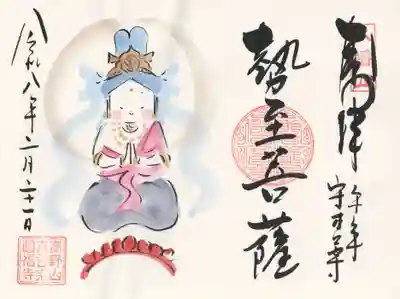 奉拝
午年
守本尊
勢至菩薩
令和八年二月二十一日
高野山